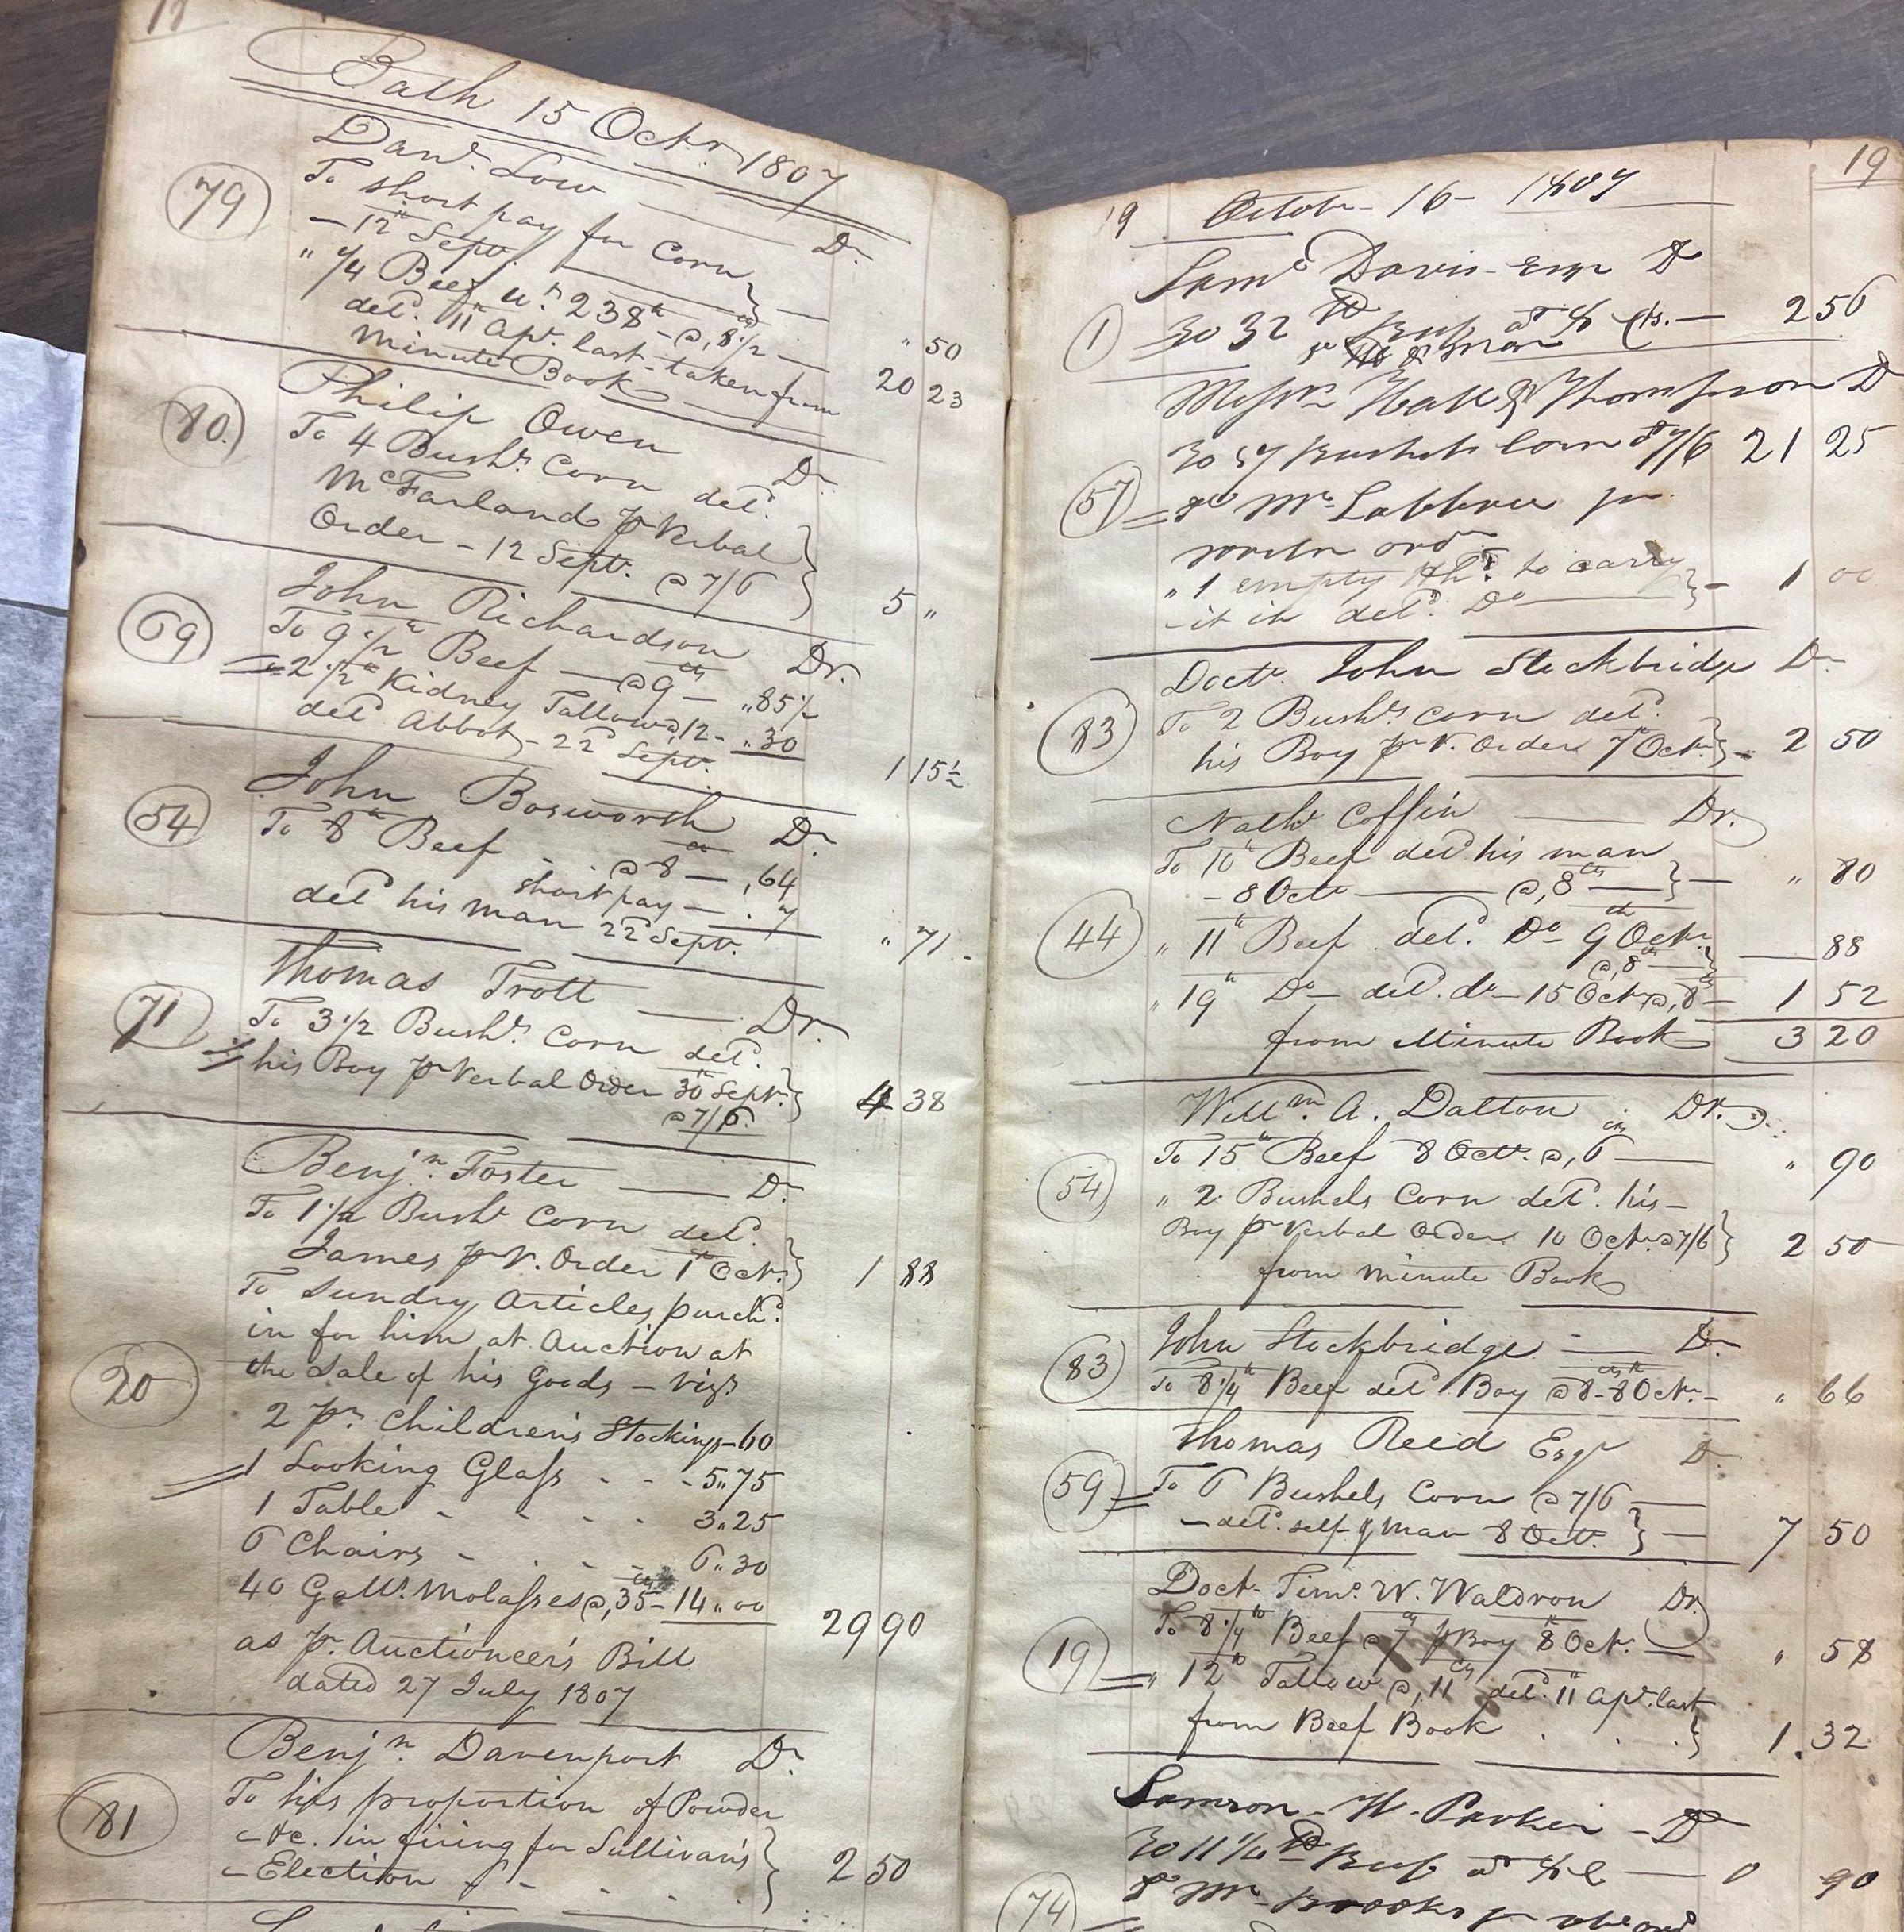 18
Bath 15 Octr 1807
Danl. Low Dr.
79
To short pay for Corn
12th Sept.
" 1/4 Beef wt. 238lb @ ,8 1/2 " 50
deld. 11th Apl. last taken from 20 23
Minute Book
Philip Owen Dr.
80
To 4 Bushs. Corn deld.
McFarland pr Verbal
Order - 12 Sept. @ 7/6 5 "
John Richardson Dr.
69
To 9 1/2lb Beef @ 9cts - ,,85 1/2
" 2 1/2lb Kidney Tallow @,12 - ,,30
deld Abbot - 22d Sept. 1 15 1/2
John Bosworth Dr.
54
To 8lb Beef - @ 8cts - ,64
short pay - . 7
deld his man 22d Sept. " 71
Thomas Trott Dr.
71
To 3 1/2 Bushs. Corn deld.
his Boy pr Verbal Order 30th Sept. 4 38
@ 7/6.
Benjn. Foster Dr
To 1 1/2 Bushs Corn deld.
James pr V. Order 1st Octr. 1 88
To Sundry Articles purchd.
in for him at Auction at
the Sale of his Goods - vizt
20
2 pr. Children's Stockings - 60
1 Looking Glass - - - 5,,75
1 Table - - - - 3,,25
6 Chairs - - - 6,,30
40 Galls. Molasses @,35cts - 14,,00 29 90
as pr. Auctioneer's Bill
dated 27 July 1807
Benjn. Davenport Dr
81
To his proportion of Powder
&c. in firing for Sullivan's
Election 2 50
19 October 16 - 1807 19
Saml Davis Esqr Dr
1
To 32 lb Beef at 8 Cts. 2 56
Messrs Hall & Thompson Dr
To 17 Bushels Corn @ 7/6 21 25
57
Mr. pr
order
" 1 empty Hhd. to carry 1 00
it in deld. Do
Doctr. John Stockbridge Dr
83
To 2 Bushs Corn deld.
his Boy pr V. Order 7th Octr. 2 50
Nathl Coffin Dr.
To 10lb Beef deld his man
- 8 Octr @,8cts " 80
44
" 11lb Beef deld. Do 9th Octr.
@,8cts 88
" 19lb Do deld. do 15 Octr @,8cts 1 52
from Minute Book 3 20
Willm. A. Dalton Dr.
To 15lb Beef 8 Octr. @,6cts " 90
54
" 2 Bushels Corn deld. his
Boy pr Verbal Order 10 Octr. @ 7/6 2 50
from Minute Book
John Stockbridge Dr
83
To 8 1/4lb Beef deld. Boy @ 8cts - 8th Octr. " 66
Thomas Reed Esqr Dr
59
To 6 Bushels Corn @ 7/6
deld. self & man 8 Octr. 7 50
Doctr Timo. W. Waldron Dr.
To 8 1/4lb Beef @ 7cts pr Boy 8th Oct. " 58
19
" 12lb Tallow @,11cts deld. 11th Apl. last
from Beef Book 1.32
Samson W. Parker Dr
To 11 1/4 lb Beef at 8 c 0 90
74
Mr Brooks pr